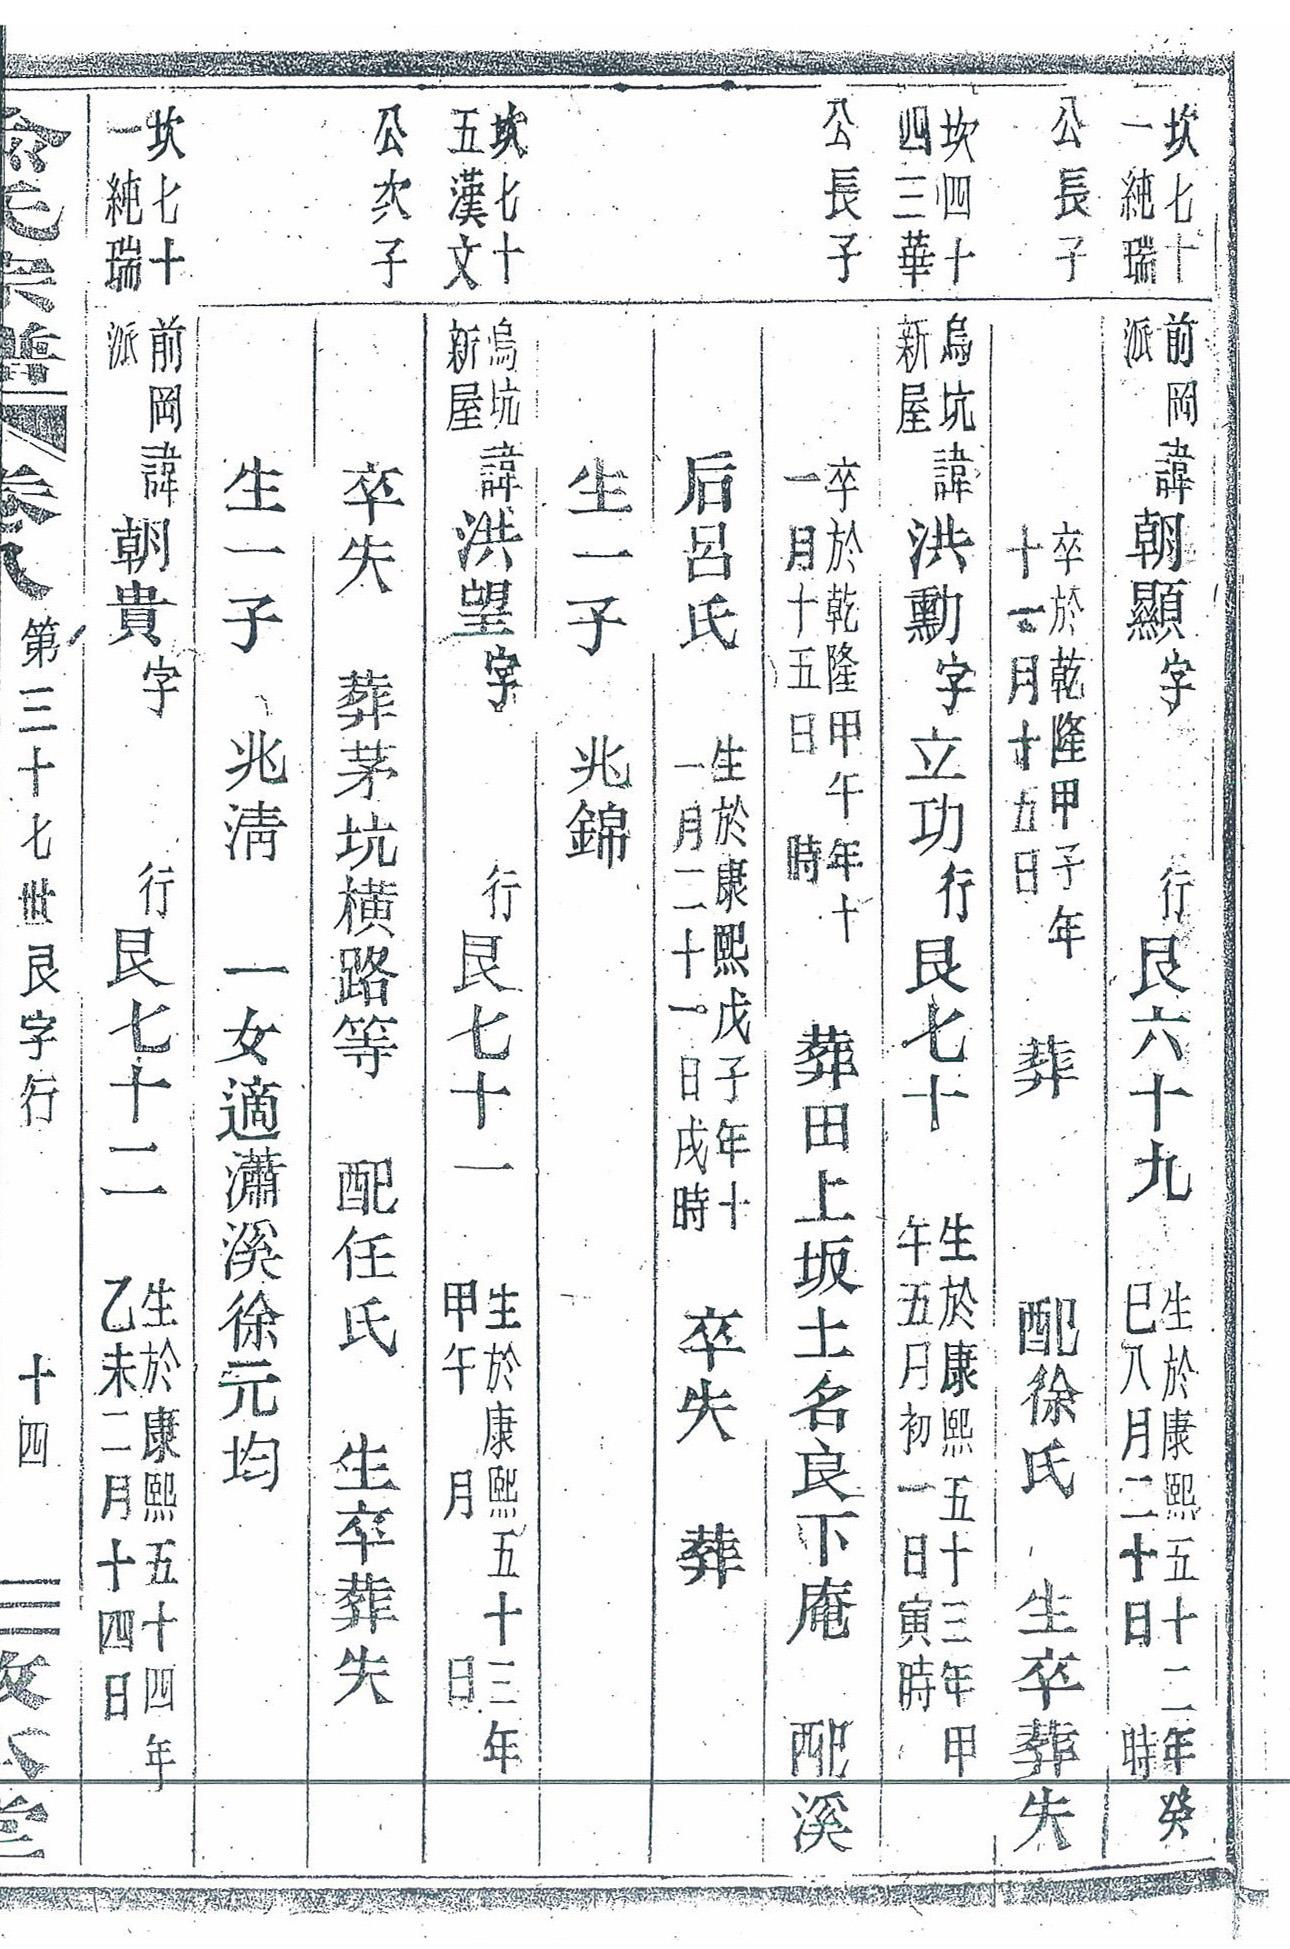 坎七十
一純瑞
公長子
前岡
派
諱朝顯字 行艮六十九
生於康熙五十二年癸
巳八月二十日 時
卒於乾隆甲子年
十一月十五日
葬 配徐氏 生卒葬失
坎四十
四三華
公長子
烏坑
新屋
諱洪勳字立功行艮七十
生於康熙五十三年甲
午五月初一日寅時
卒於乾隆甲午年十
一月十五日 時
葬田上坂土名良下庵 配溪
后呂氏
生於康熙戊子年十
一月二十一日戌時
卒失 葬
生一子 兆錦
坎七十
五漢文
公次子
烏坑
新屋
諱洪望字 行艮七十一
生於康熙五十三年
甲午 月 日
卒失 葬茅坑橫路等 配任氏 生卒葬失
生一子 兆清 一女適瀟溪徐元均
坎七十
一純瑞
前岡
派
諱朝貴字 行艮七十二
生於康熙五十四年
乙未二月十四日
氏宗譜 卷八 第三十七世艮字行 十四